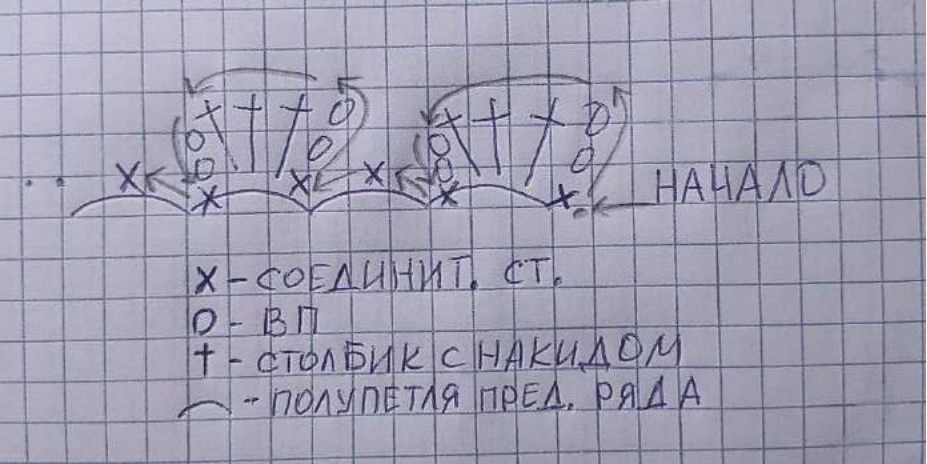 НАЧАЛО
X - СОЕДИНИТ. СТ.
О - ВП
† - СТОЛБИК С НАКИДОМ
⌒ - ПОЛУПЕТЛЯ ПРЕД. РЯДА